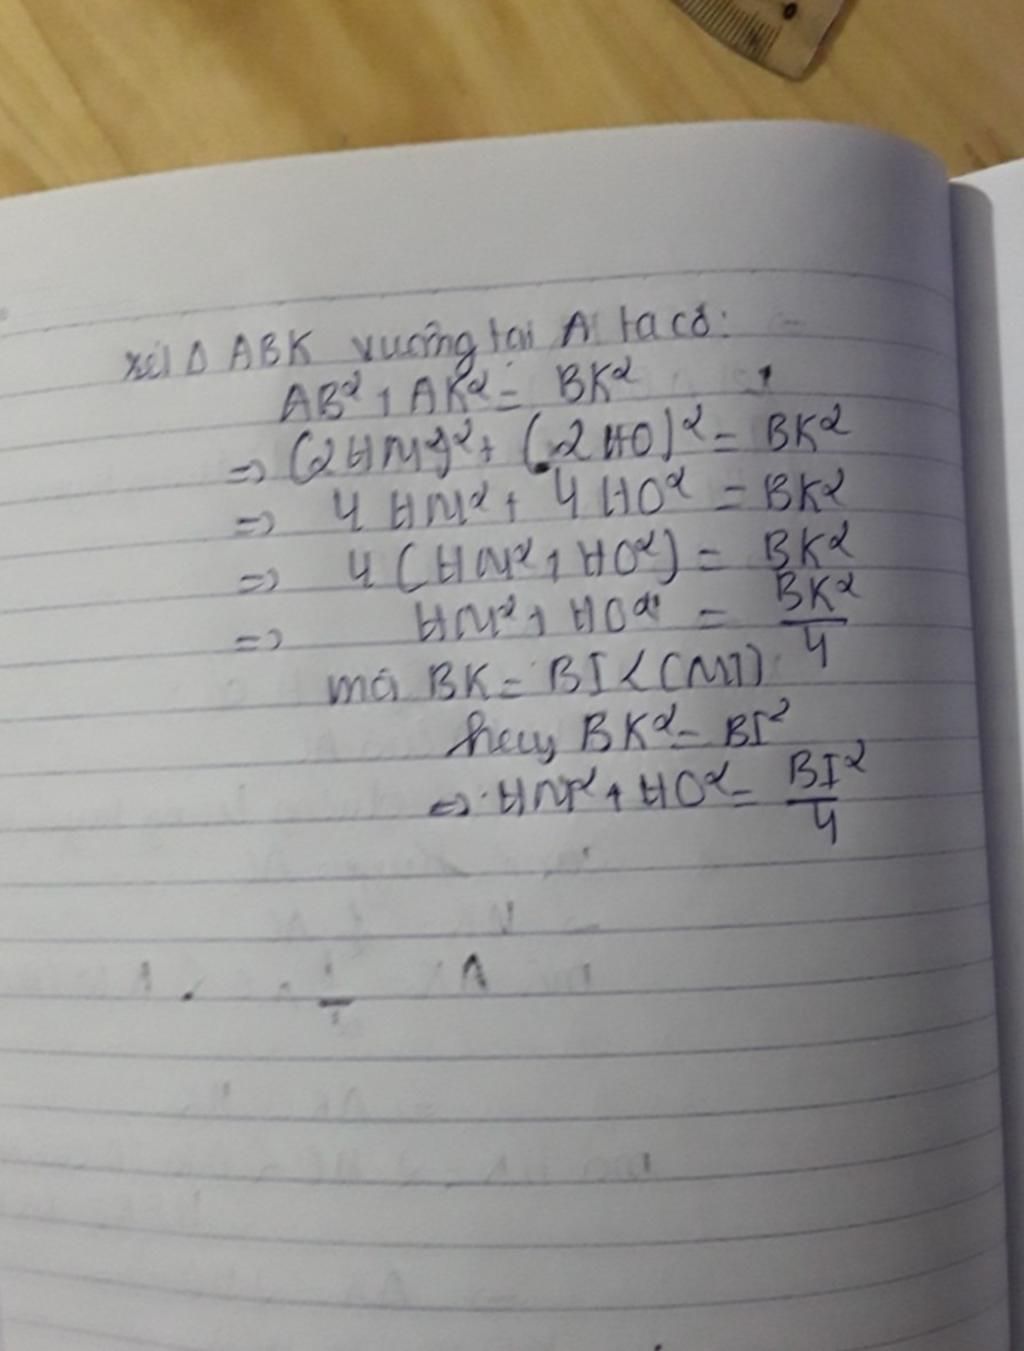 xét Δ ABK vuông tại A ta có:
AB² + AK² = BK²
=> (2HM)² + (2HO)² = BK²
=> 4 HM² + 4 HO² = BK²
=> 4 (HM² + HO²) = BK²
=> HM² + HO² = BK²/4
mà BK = BI (CMT)
hay BK² = BI²
<=> HM² + HO² = BI²/4